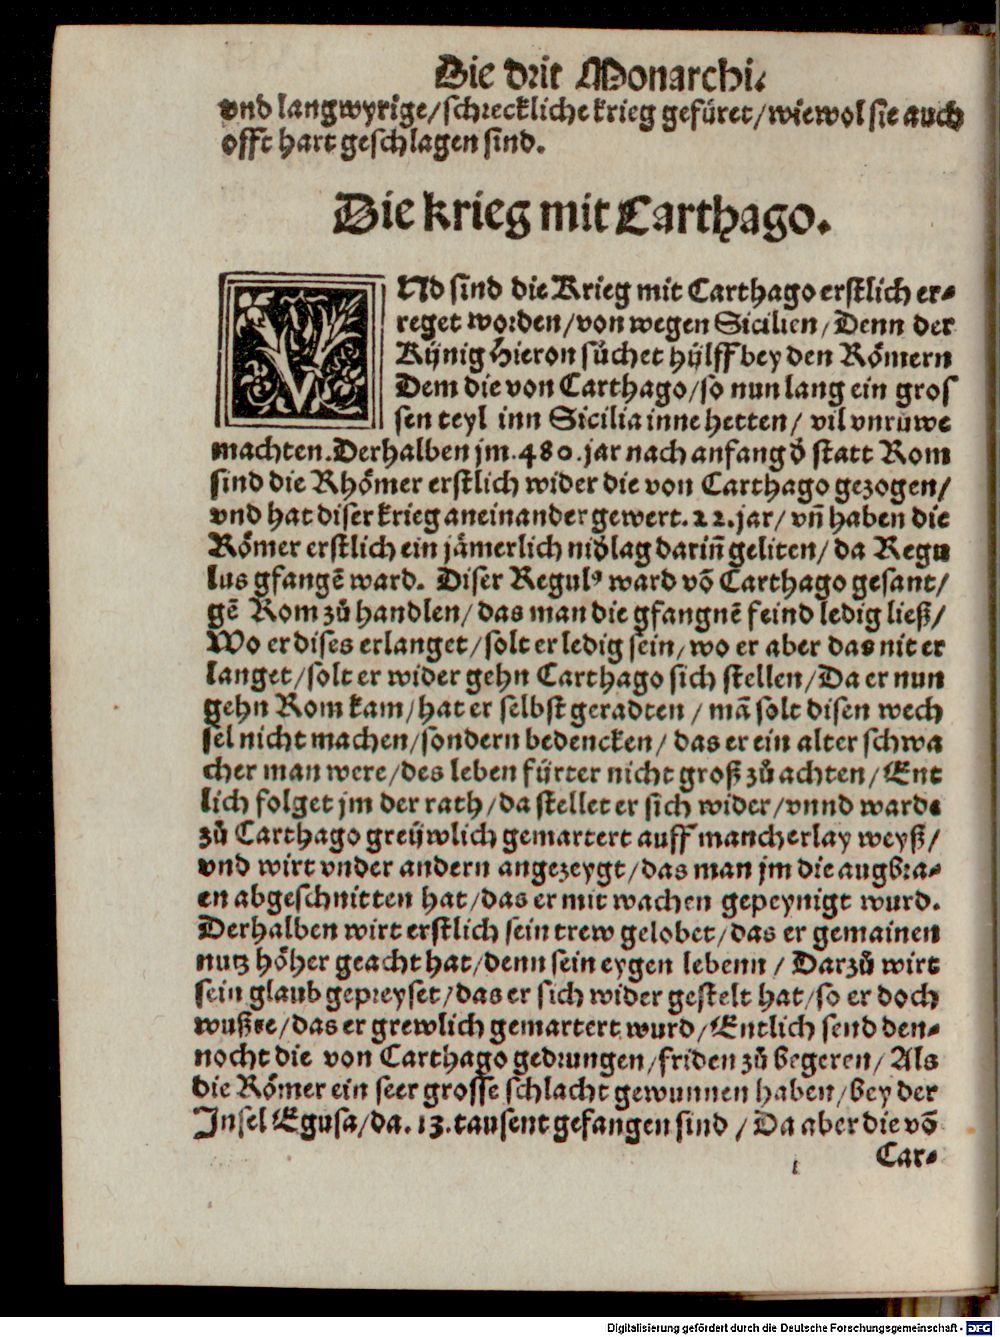 Die drit Monarchi/
vnd langwyrige/schreckliche krieg gefüret/wiewol sie auch
offt hart geschlagen sind.
Die krieg mit Carthago.
VNd sind die Krieg mit Carthago erstlich er-
reget worden/von wegen Sicilien/Denn der
Kÿnig Hieron sůchet hÿlff bey den Römern
Dem die von Carthago/so nun lang ein gros
sen teyl inn Sicilia inne hetten/ vil vnrůwe
machten.Derhalben jm.480.jar nach anfang ď statt Rom
sind die Rhömer erstlich wider die von Carthago gezogen/
vnd hat diser krieg aneinander gewert.22.jar/vn̄ haben die
Römer erstlich ein jämerlich niďlag darin̄ geliten/da Regu
lus gfangē ward. Diser Regulꝰ ward vō Carthago gesant/
gē Rom zů handlen/das man die gfangnē feind ledig ließ/
Wo er dises erlanget/solt er ledig sein/wo er aber das nit er
langet/solt er wider gehn Carthago sich stellen/Da er nun
gehn Rom kam/hat er selbst geradten/mā solt disen wech
sel nicht machen/sondern bedencken/das er ein alter schwa
cher man were/des leben fürter nicht groß zů achten/Ent
lich folget jm der rath/da stellet er sich wider/vnnd warde
zů Carthago greüwlich gemartert auff mancherlay weyß/
vnd wirt vnder andern angezeygt/das man jm die augbra-
en abgeschnitten hat/das er mit wachen gepeynigt wurd.
Derhalben wirt erstlich sein trew gelobet/das er gemainen
nutz höher geacht hat/denn sein eygen lebenn/ Darzů wirt
sein glaub gepreyset/das er sich wider gestelt hat/so er doch
wußte/das er grewlich gemartert wurd/Entlich send den-
nocht die von Carthago gedrungen/friden zů begeren/Als
die Römer ein seer grosse schlacht gewunnen haben/bey der
Insel Egusa/da.13.tausent gefangen sind/Da aber die vō
Car-
Digitalisierung gefördert durch die Deutsche Forschungsgemeinschaft - DFG